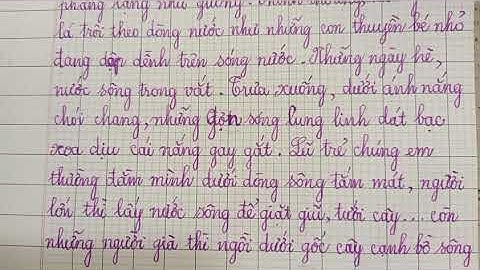 phẳng lặng như gương.
lá trôi theo dòng nước như những con thuyền bé nhỏ
đang dập dềnh trên sóng nước. Những ngày hè,
nước sông trong vắt. Trưa xuống, dưới ánh nắng
chói chang, những gợn sóng lung linh dát bạc
xoa dịu cái nắng gay gắt. Lũ trẻ chúng em
thường đắm mình dưới dòng sông tắm mát, người
lớn thì lấy nước sông để giặt giũ, tưới cây... còn
những người già thì ngồi dưới gốc cây cạnh bờ sông